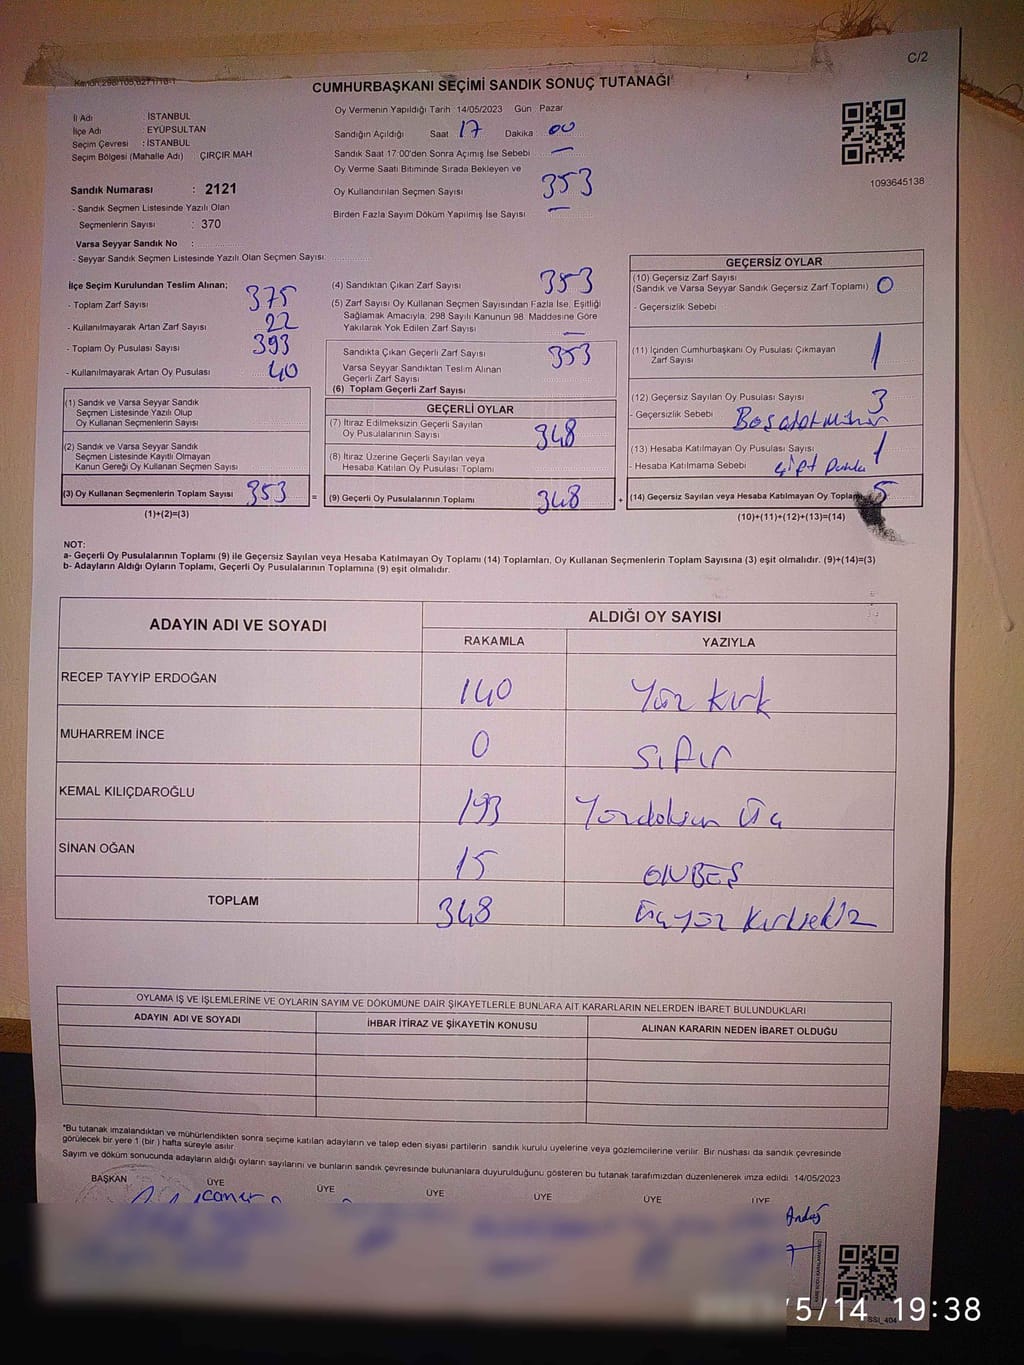 C/2
Kanun:298/105,6271/18-1
CUMHURBAŞKANI SEÇİMİ SANDIK SONUÇ TUTANAĞI
İl Adı İSTANBUL
İlçe Adı : EYÜPSULTAN
Seçim Çevresi : İSTANBUL
Seçim Bölgesi (Mahalle Adı) ÇIRÇIR MAH
Oy Vermenin Yapıldığı Tarih 14/05/2023 Gün Pazar
Sandığın Açıldığı Saat 17 Dakika 00
Sandık Saat 17:00'den Sonra Açımış İse Sebebi —
Oy Verme Saati Bitiminde Sırada Bekleyen ve
Oy Kullandırılan Seçmen Sayısı 353
Birden Fazla Sayım Döküm Yapılmış İse Sayısı —
1093645138
Sandık Numarası : 2121
- Sandık Seçmen Listesinde Yazılı Olan
Seçmenlerin Sayısı : 370
Varsa Seyyar Sandık No :
- Seyyar Sandık Seçmen Listesinde Yazılı Olan Seçmen Sayısı
İlçe Seçim Kurulundan Teslim Alınan;
- Toplam Zarf Sayısı 375
- Kullanılmayarak Artan Zarf Sayısı 22
- Toplam Oy Pusulası Sayısı 393
- Kullanılmayarak Artan Oy Pusulası 40
(1) Sandık ve Varsa Seyyar Sandık
Seçmen Listesinde Yazılı Olup
Oy Kullanan Seçmenlerin Sayısı
(2) Sandık ve Varsa Seyyar Sandık
Seçmen Listesinde Kayıtlı Olmayan
Kanun Gereği Oy Kullanan Seçmen Sayısı
(3) Oy Kullanan Seçmenlerin Toplam Sayısı 353 =
(1)+(2)=(3)
(4) Sandıktan Çıkan Zarf Sayısı 353
(5) Zarf Sayısı Oy Kullanan Seçmen Sayısından Fazla İse, Eşitliği
Sağlamak Amacıyla, 298 Sayılı Kanunun 98. Maddesine Göre
Yakılarak Yok Edilen Zarf Sayısı —
Sandıkta Çıkan Geçerli Zarf Sayısı 353
Varsa Seyyar Sandıktan Teslim Alınan
Geçerli Zarf Sayısı
(6) Toplam Geçerli Zarf Sayısı
GEÇERLİ OYLAR
(7) İtiraz Edilmeksizin Geçerli Sayılan
Oy Pusulalarının Sayısı 348
(8) İtiraz Üzerine Geçerli Sayılan veya
Hesaba Katılan Oy Pusulası Toplamı
(9) Geçerli Oy Pusulalarının Toplamı 348 +
GEÇERSİZ OYLAR
(10) Geçersiz Zarf Sayısı
(Sandık ve Varsa Seyyar Sandık Geçersiz Zarf Toplamı) 0
- Geçersizlik Sebebi
(11) İçinden Cumhurbaşkanı Oy Pusulası Çıkmayan
Zarf Sayısı 1
(12) Geçersiz Sayılan Oy Pusulası Sayısı 3
- Geçersizlik Sebebi
(13) Hesaba Katılmayan Oy Pusulası Sayısı 1
- Hesaba Katılmama Sebebi Çift
(14) Geçersiz Sayılan veya Hesaba Katılmayan Oy Toplamı 5
(10)+(11)+(12)+(13)=(14)
NOT:
a- Geçerli Oy Pusulalarının Toplamı (9) ile Geçersiz Sayılan veya Hesaba Katılmayan Oy Toplamı (14) Toplamları, Oy Kullanan Seçmenlerin Toplam Sayısına (3) eşit olmalıdır. (9)+(14)=(3)
b- Adayların Aldığı Oyların Toplamı, Geçerli Oy Pusulalarının Toplamına (9) eşit olmalıdır.
ADAYIN ADI VE SOYADI ALDIĞI OY SAYISI
RAKAMLA YAZIYLA
RECEP TAYYİP ERDOĞAN 140 Yüz kırk
MUHARREM İNCE 0 sıfır
KEMAL KILIÇDAROĞLU 193 Yüzdoksan Üç
SİNAN OĞAN 15 ONBEŞ
TOPLAM 348 Üçyüz kırksekiz
OYLAMA İŞ VE İŞLEMLERİNE VE OYLARIN SAYIM VE DÖKÜMÜNE DAİR ŞİKAYETLERLE BUNLARA AİT KARARLARIN NELERDEN İBARET BULUNDUKLARI
ADAYIN ADI VE SOYADI İHBAR İTİRAZ VE ŞİKAYETİN KONUSU ALINAN KARARIN NEDEN İBARET OLDUĞU
*Bu tutanak imzalandıktan ve mühürlendikten sonra seçime katılan adayların ve talep eden siyasi partilerin sandık kurulu üyelerine veya gözlemcilerine verilir. Bir nüshası da sandık çevresinde
görülecek bir yere 1 (bir) hafta süreyle asılır
Sayım ve döküm sonucunda adayların aldığı oyların sayılarını ve bunların sandık çevresinde bulunanlara duyurulduğunu gösteren bu tutanak tarafımızdan düzenlenerek imza edildi. 14/05/2023
BAŞKAN ÜYE ÜYE ÜYE ÜYE ÜYE ÜYE
/5/14 19:38